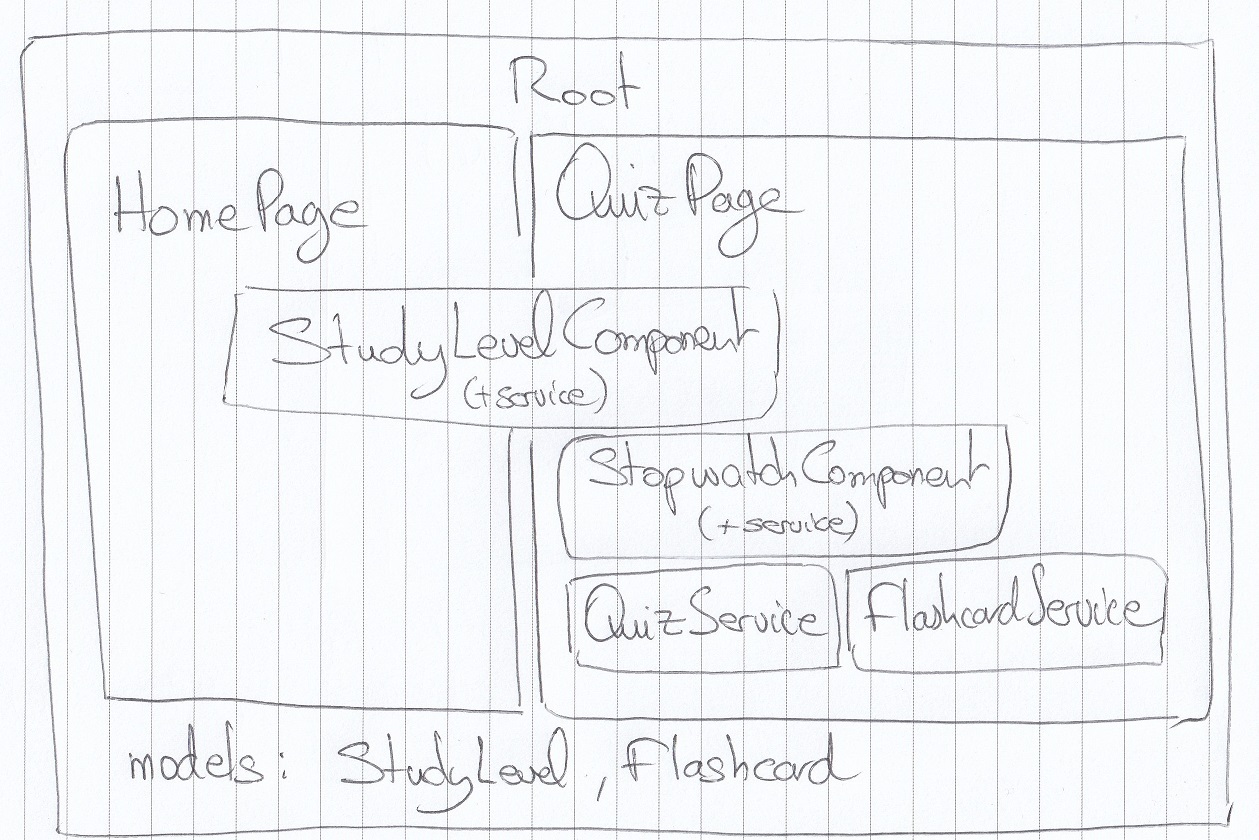 Root
HomePage
QuizPage
StudyLevelComponent
(+service)
StopwatchComponent
(+service)
QuizService
FlashcardService
models: StudyLevel, Flashcard